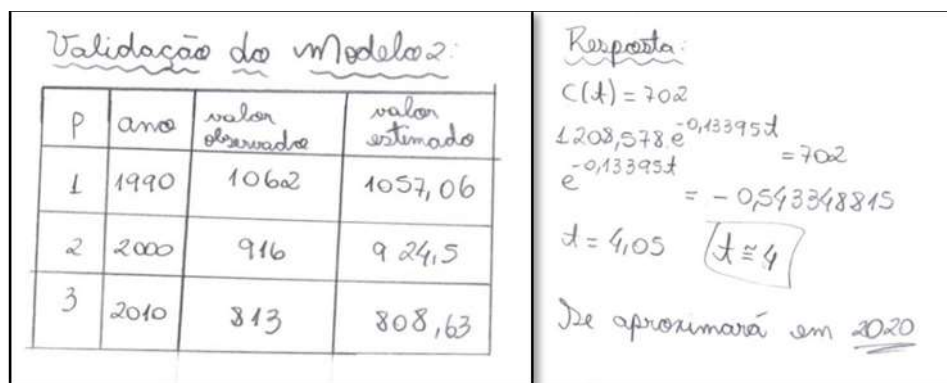 Validação do Modelo 2:
P ano valor observado valor estimado
1 1990 1062 1057,06
2 2000 916 924,5
3 2010 813 808,63
Resposta:
C(t) = 702
1208,578.e^-0,13395t = 702
e^-0,13395t = - 0,543348815
t = 4,05 t ≅ 4
Se aproximará em 2020